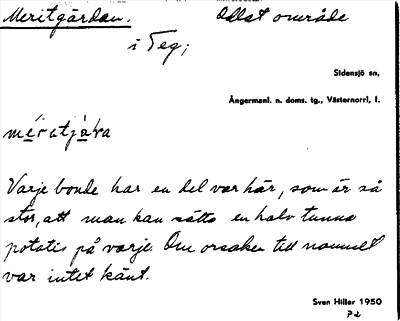 Meritgärdan. Odlat område
i Teg;
Sidensjö sn,
Ångermanl. n. doms. tg., Västernorrl. l.
meratjäɽa
Varje bonde har en del var här, som är så
stor, att man kan sätta en halv tunna
potatis på varje. Om orsaken till namnet
var intet känt.
Sven Hiller 1950